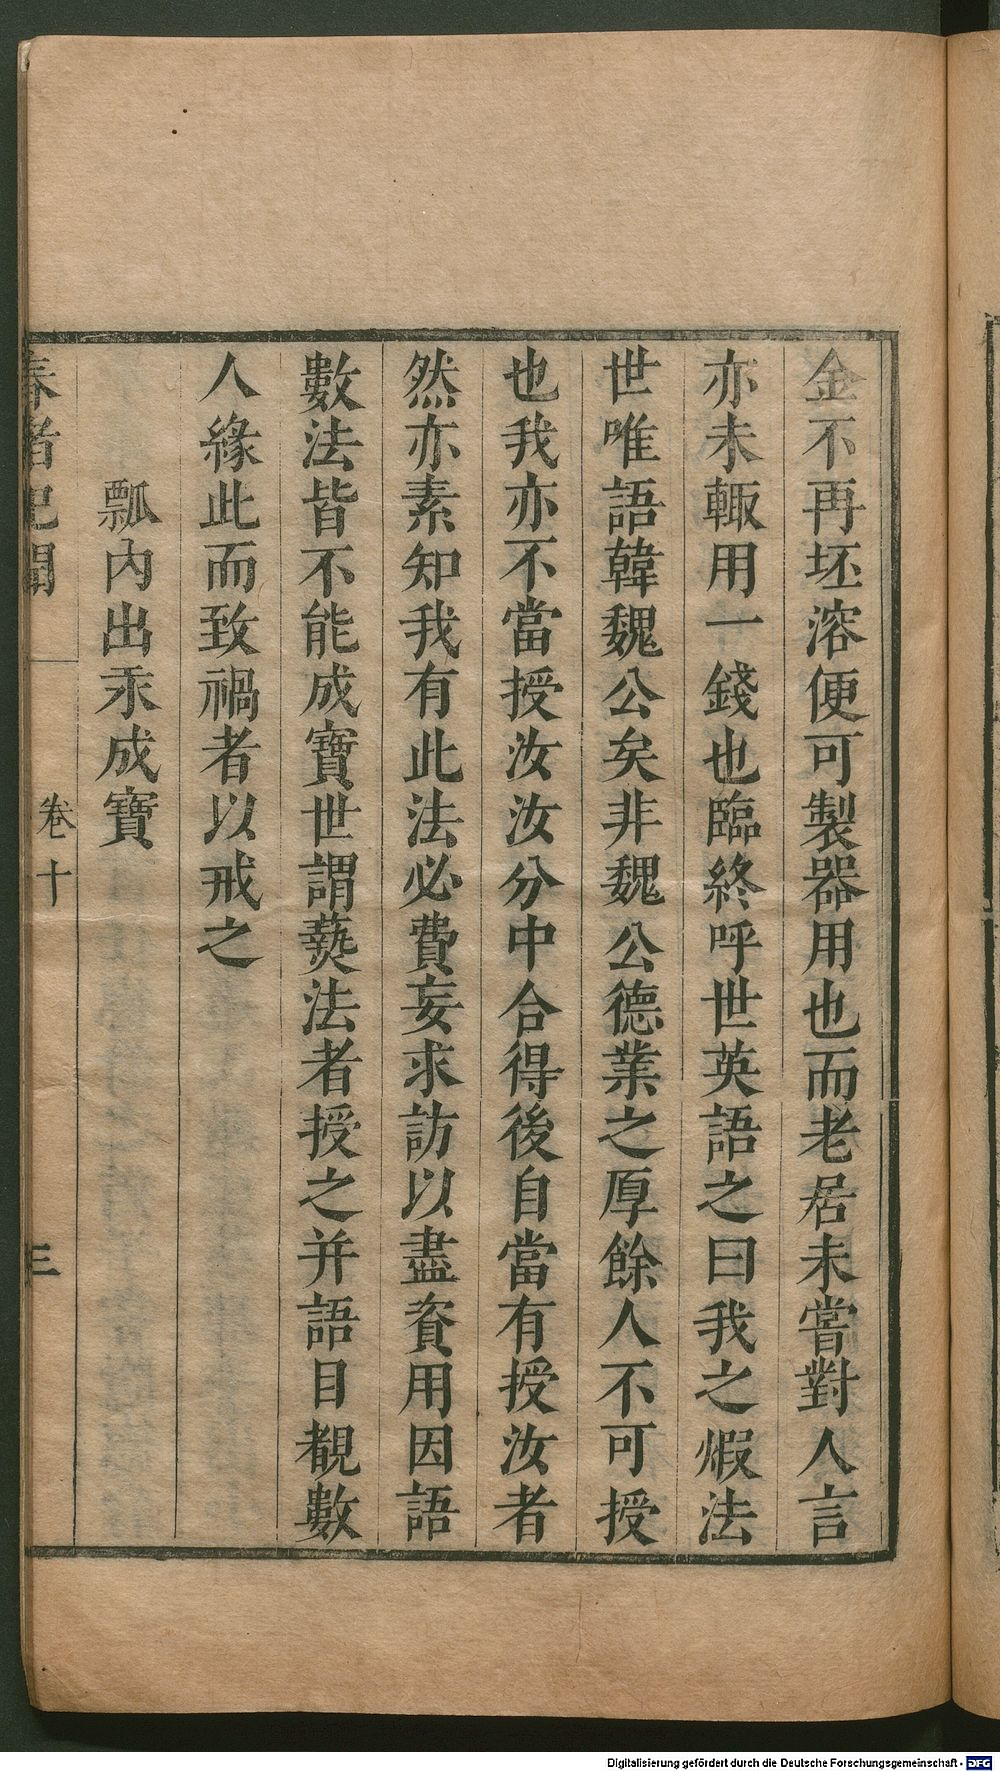 金不再坯溶便可製器用也而老居未嘗對人言
亦未輙用一錢也臨終呼世英語之曰我之煆法
世唯語韓魏公矣非魏公德業之厚餘人不可授
也我亦不當授汝汝分中合得後自當有授汝者
然亦素知我有此法必費妄求訪以盡資用因語
數法皆不能成寶世謂藀法者授之并語目覩數
人緣此而致禍者以戒之
瓢内出汞成寶
春渚紀聞
卷十
三
Digitalisierung gefördert durch die Deutsche Forschungsgemeinschaft - DFG